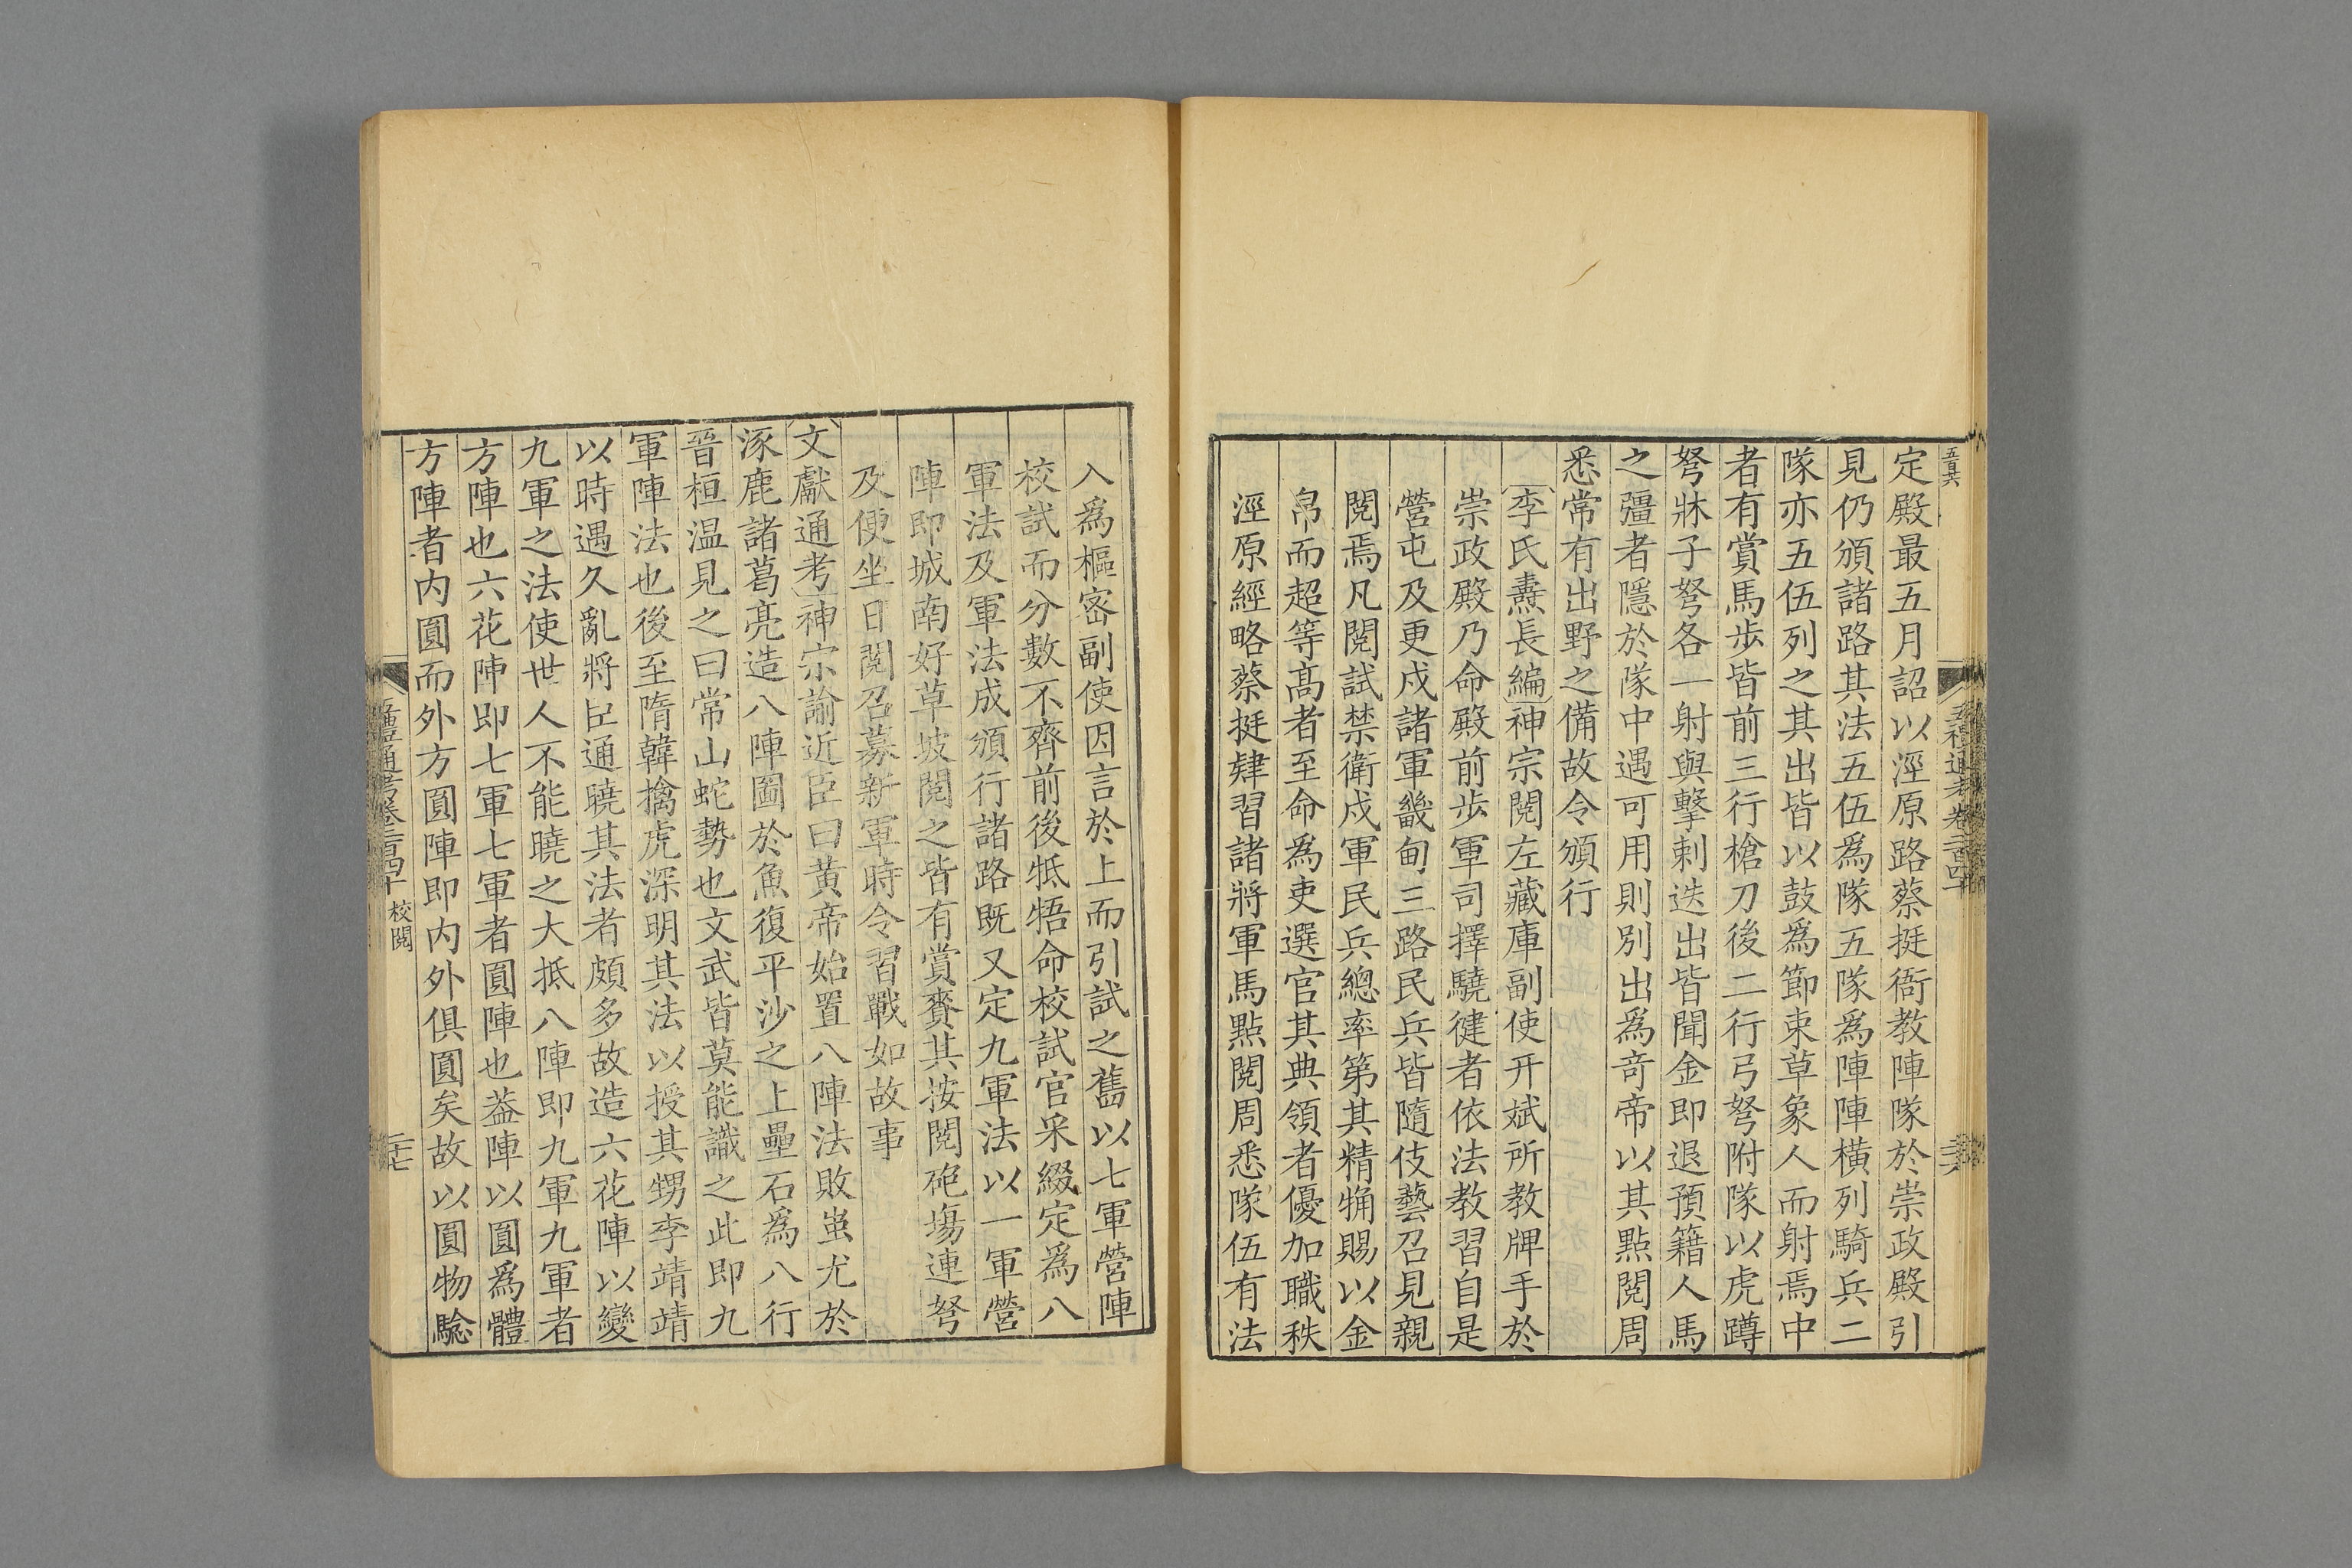 五百六
定殿最五月詔以涇原路蔡挺衙教陣隊於崇政殿引
見仍頒諸路其法五伍爲隊五隊爲陣陣橫列騎兵二
隊亦五伍列之其出皆以鼓爲節束草象人而射焉中
者有賞馬步皆前三行槍刀後二行弓弩附隊以虎蹲
弩牀子弩各一射與擊刺迭出皆聞金即退預籍人馬
之彊者隱於隊中遇可用則別出爲竒帝以其點閱周
悉常有出野之備故令頒行
李氏燾長編神宗閱左藏庫副使开斌所教牌手於
崇政殿乃命殿前步軍司擇驍健者依法教習自是
營屯及更戍諸軍畿甸三路民兵皆隨伎藝召見親
閱焉凡閱試禁衛戍軍民兵總率第其精觕賜以金
帛而超等髙者至命爲吏選官其典領者優加職秩
涇原經略蔡挺肄習諸將軍馬點閱周悉隊伍有法
五禮通考卷二百四十
二十六
入爲樞密副使因言於上而引試之舊以七軍營陣
校試而分數不齊前後牴牾命校試官采綴定爲八
軍法及軍法成頒行諸路既又定九軍法以一軍營
陣即城南好草坡閱之皆有賞賚其按閱砲塲連弩
及便坐日閱召募新軍時令習戰如故事
文獻通考神宗諭近臣曰黃帝始置八陣法敗蚩尤於
涿鹿諸葛亮造八陣圖於魚復平沙之上壘石爲八行
晉桓温見之曰常山蛇勢也文武皆莫能識之此即九
軍陣法也後至隋韓擒虎深明其法以授其甥李靖靖
以時遇久亂將臣通曉其法者頗多故造六花陣以變
九軍之法使世人不能曉之大抵八陣即九軍九軍者
方陣也六花陣即七軍七軍者圓陣也葢陣以圓爲體
方陣者内圓而外方圓陣即内外俱圓矣故以圓物驗
五禮通考卷二百四十 校閱
二十七